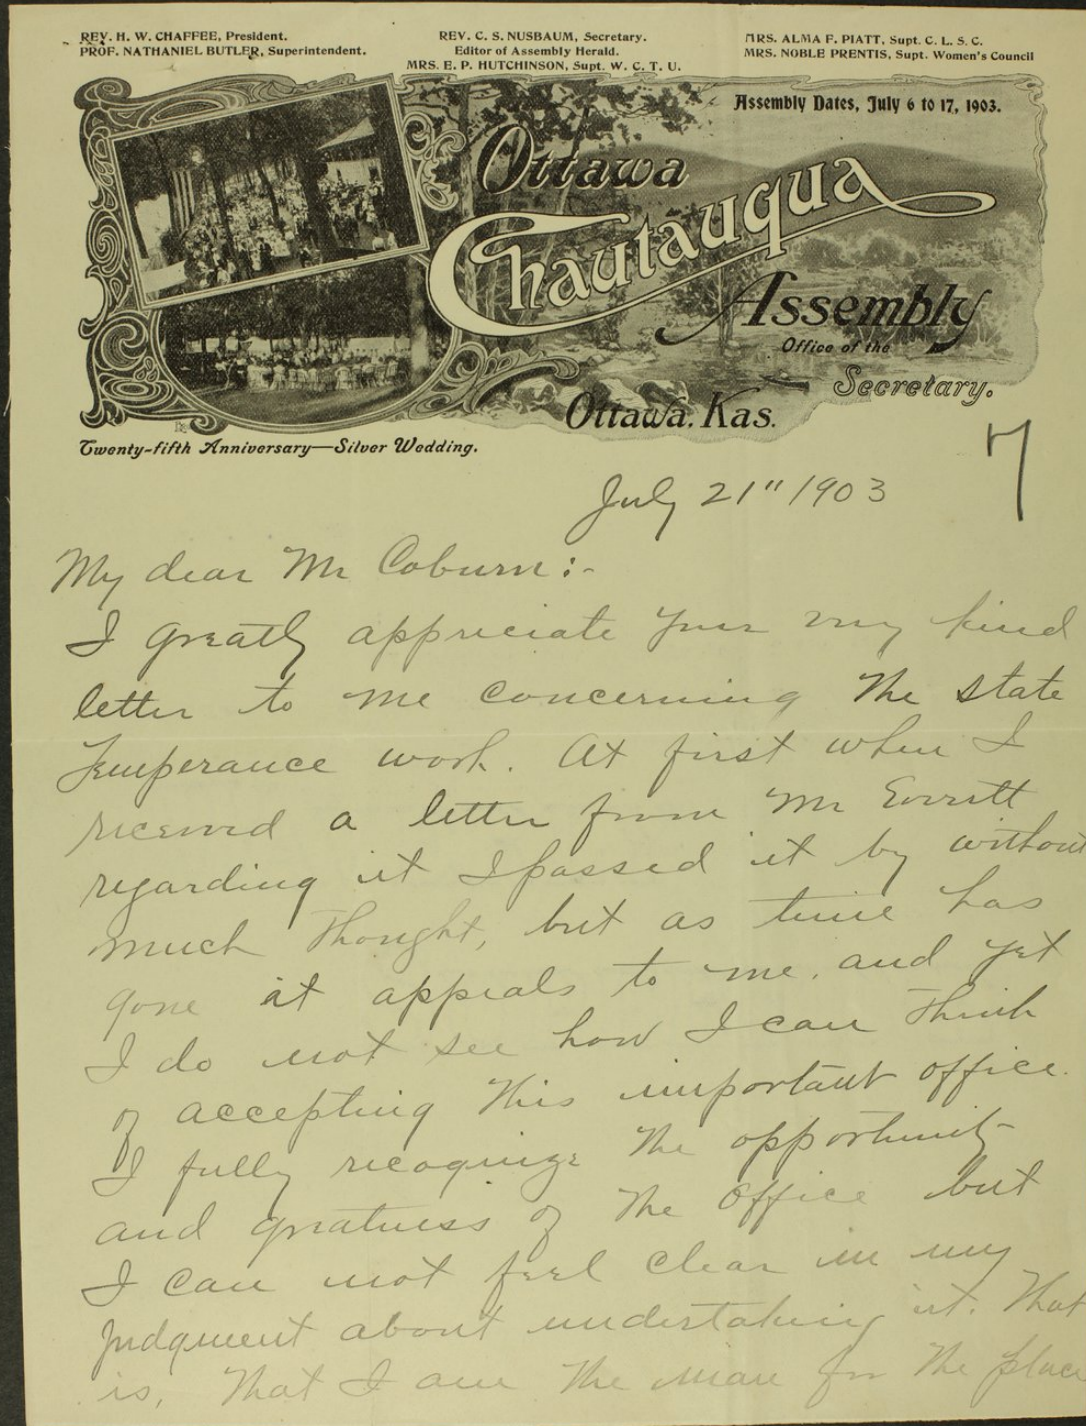 REV. H. W. CHAFFEE, President.
PROF. NATHANIEL BUTLER, Superintendent.
REV. C. S. NUSBAUM, Secretary.
Editor of Assembly Herald.
MRS. E. P. HUTCHINSON, Supt. W. C. T. U.
MRS. ALMA F. PIATT, Supt. C. L. S. C.
MRS. NOBLE PRENTIS, Supt. Women's Council
Assembly Dates, July 6 to 17, 1903.
Ottawa
Chautauqua
Assembly
Office of the
Secretary.
Ottawa. Kas.
Twenty-fifth Anniversary—Silver Wedding.
7
July 21" 1903
My dear Mr Coburn:-
I greatly appreciate your very kind
letter to me concerning the state
Temperance work. At first when I
received a letter from Mr
regarding it I passed it by without
much thought, but as time has
gone it appeals to me. and yet
I do not see how I can think
of accepting this important office.
I fully recognize the opportunity
and greatness of the office but
I can not feel clear in my
judgment about undertaking it. That
is, that I am the man for the place